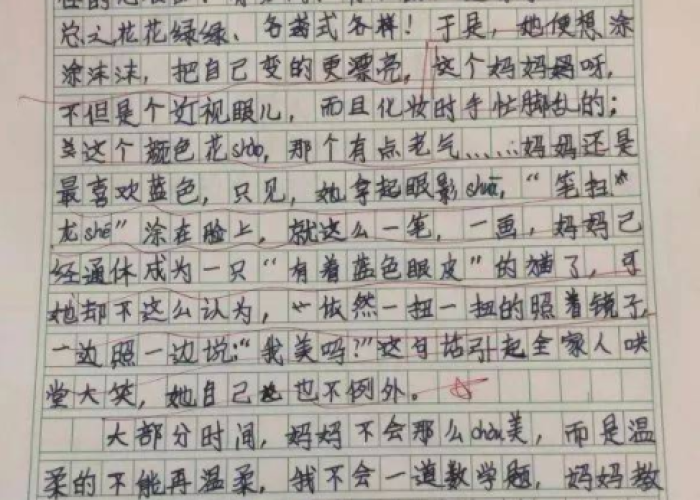 总之花花绿绿、各式各样！于是，她便想涂
涂沫沫，把自己变的更漂亮，这个妈妈呀，
不但是个近视眼儿，而且化妆时手忙脚乱的；
这个颜色花shāo，那个有点老气……妈妈还是
最喜欢蓝色，只见，她拿起眼影shuā，“笔扫
龙shé”涂在脸上，就这么一笔，一画，妈妈已
经通体成为一只“有着蓝色眼皮”的猫了，可
她却不这么认为，依然一扭一扭的照着镜子，
一边照一边说：“我美吗？”这句话引起全家人哄
堂大笑，她自己也不例外。
大部分时间，妈妈不会那么chòu美，而是温
柔的不能再温柔，我不会一道数学题，妈妈教